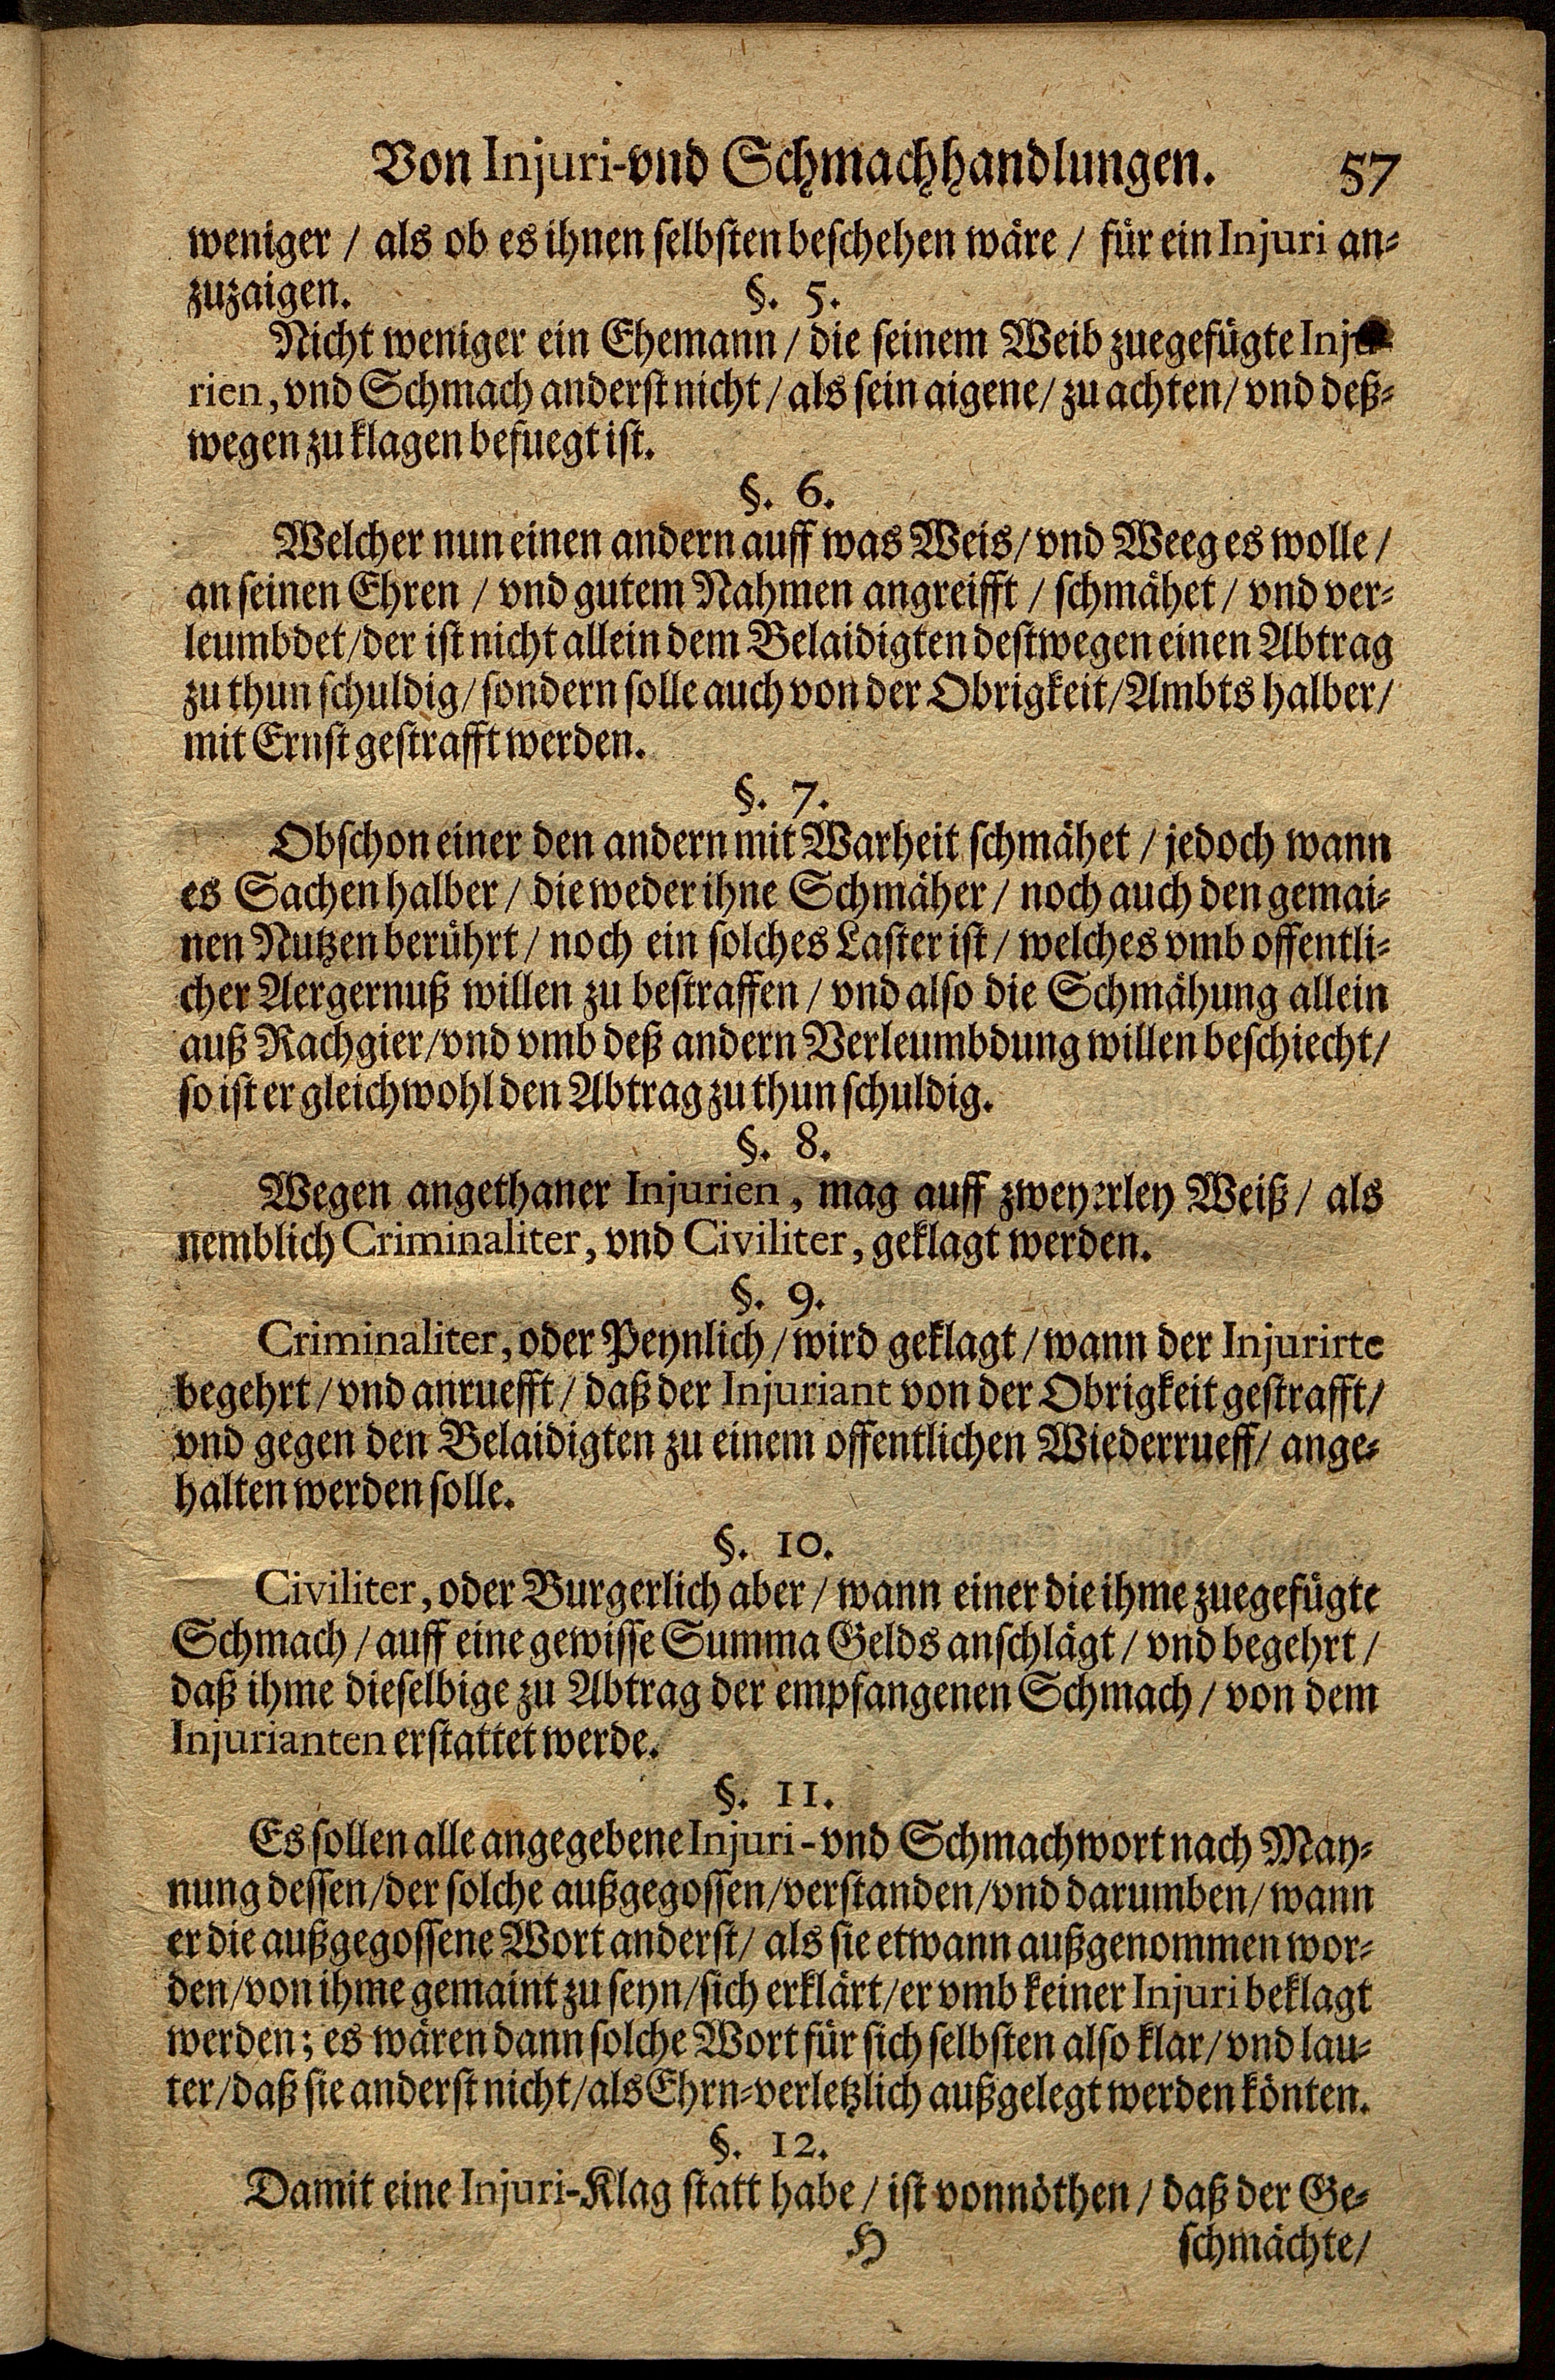 Von Injuri-vnd Schmachhandlungen. 57
weniger / als ob es ihnen selbsten beschehen wäre / für ein Injuri an-
zuzaigen. §. 5.
Nicht weniger ein Ehemann / die seinem Weib zuegefügte Inju-
rien, vnd Schmach anderst nicht / als sein aigene / zu achten / vnd deß-
wegen zu klagen befuegt ist.
§. 6.
Welcher nun einen andern auff was Weis / vnd Weeg es wolle /
an seinen Ehren / vnd gutem Nahmen angreifft / schmähet / vnd ver-
leumbdet / der ist nicht allein dem Belaidigten destwegen einen Abtrag
zu thun schuldig / sondern solle auch von der Obrigkeit / Ambts halber /
mit Ernst gestrafft werden.
§. 7.
Obschon einer den andern mit Warheit schmähet / jedoch wann
es Sachen halber / die weder ihne Schmäher / noch auch den gemai-
nen Nutzen berührt / noch ein solches Laster ist / welches vmb offentli-
cher Aergernuß willen zu bestraffen / vnd also die Schmähung allein
auß Rachgier / vnd vmb deß andern Verleumbdung willen beschiecht /
so ist er gleichwohl den Abtrag zu thun schuldig.
§. 8.
Wegen angethaner Injurien, mag auff zweyerley Weiß / als
nemblich Criminaliter, vnd Civiliter, geklagt werden.
§. 9.
Criminaliter, oder Peynlich / wird geklagt / wann der Injurirte
begehrt / vnd anruefft / daß der Injuriant von der Obrigkeit gestrafft /
vnd gegen den Belaidigten zu einem offentlichen Wiederrueff / ange-
halten werden solle.
§. 10.
Civiliter, oder Burgerlich aber / wann einer die ihme zuegefügte
Schmach / auff eine gewisse Summa Gelds anschlägt / vnd begehrt /
daß ihme dieselbige zu Abtrag der empfangenen Schmach / von dem
Injurianten erstattet werde.
§. 11.
Es sollen alle angegebene Injuri-vnd Schmachwort nach May-
nung dessen / der solche außgegossen / verstanden / vnd darumben / wann
er die außgegossene Wort anderst / als sie etwann außgenommen wor-
den / von ihme gemaint zu seyn / sich erklärt / er vmb keiner Injuri beklagt
werden; es wären dann solche Wort für sich selbsten also klar / vnd lau-
ter / daß sie anderst nicht / als Ehrn-verletzlich außgelegt werden könten.
§. 12.
Damit eine Injuri-Klag statt habe / ist vonnöthen / daß der Ge-
H schmächte /